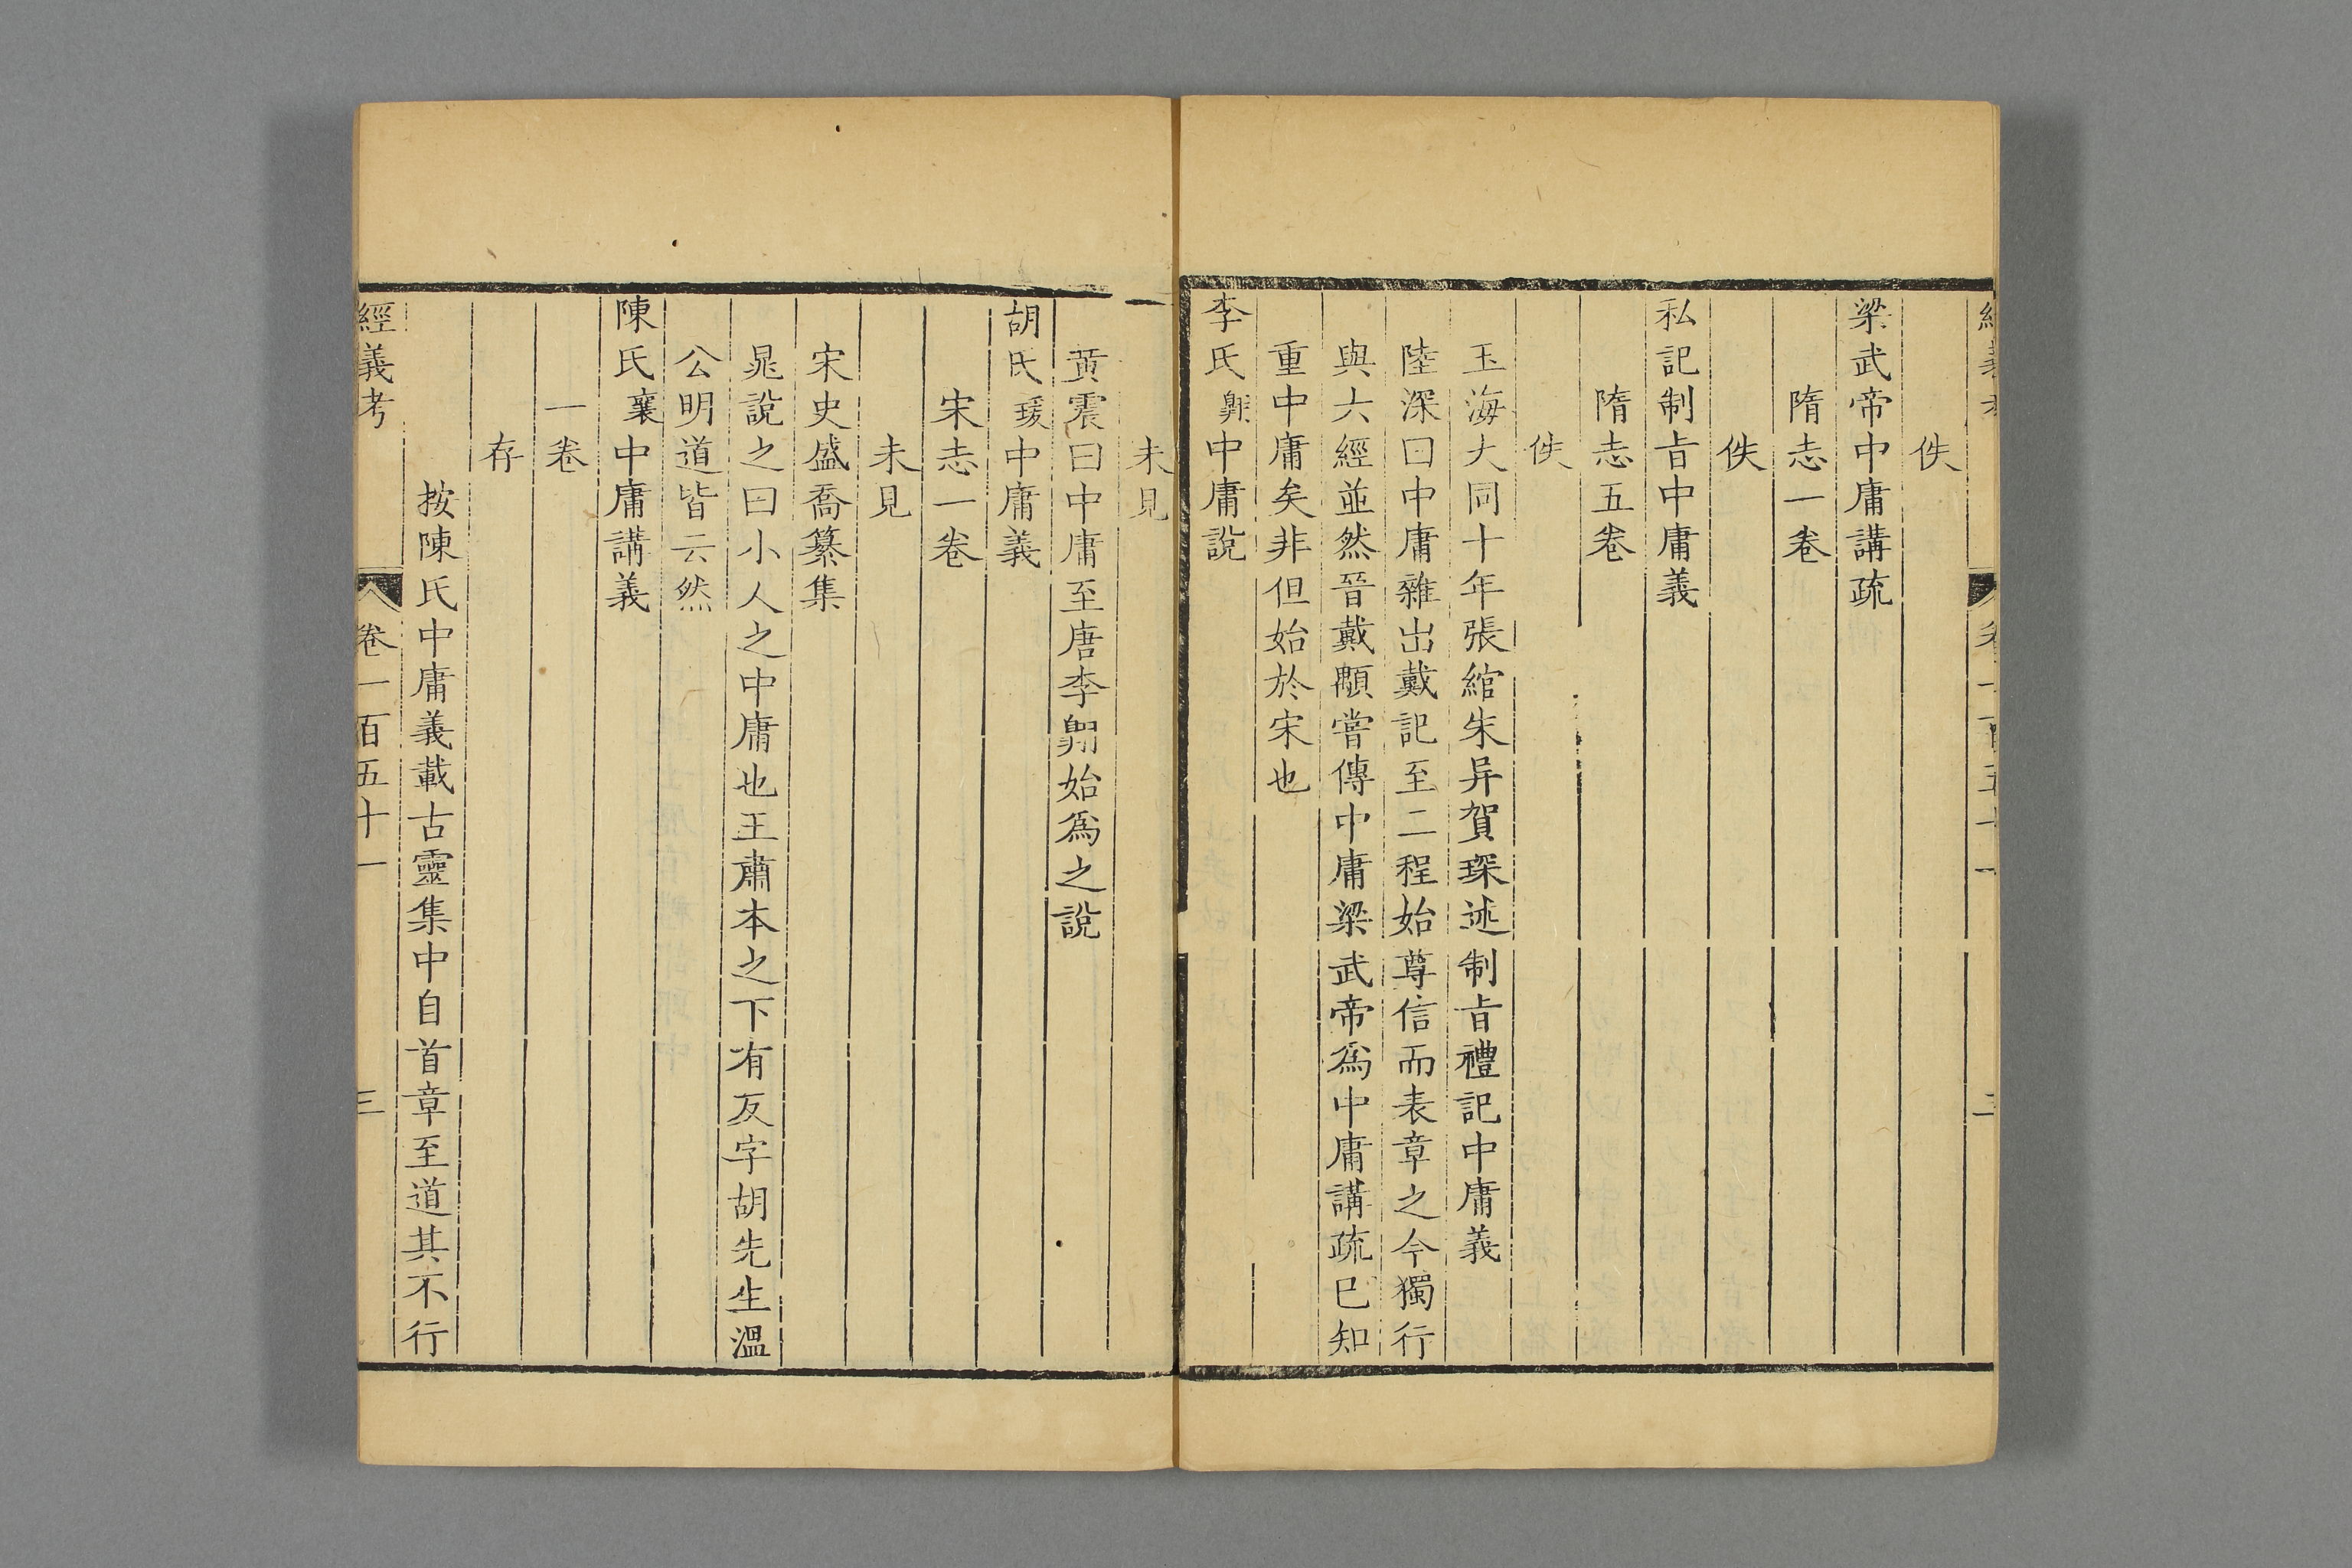 佚
梁武帝中庸講疏
隋志一卷
佚
私記制㫖中庸義
隋志五卷
佚
玉海大同十年張綰朱异賀琛述制㫖禮記中庸義
陸深曰中庸雜出戴記至二程始尊信而表章之今獨行
與六經並然晉戴顒嘗傳中庸梁武帝為中庸講疏巳知
重中庸矣非但始於宋也
李氏翺中庸說
未見
黃震曰中庸至唐李翺始為之說
胡氏瑗中庸義
宋志一卷
未見
宋史盛喬纂集
晁說之曰小人之中庸也王肅本之下有反字胡先生溫
公明道皆云然
陳氏襄中庸講義
一卷
存
按陳氏中庸義載古靈集中自首章至道其不行
經義考 卷一百五十一 三